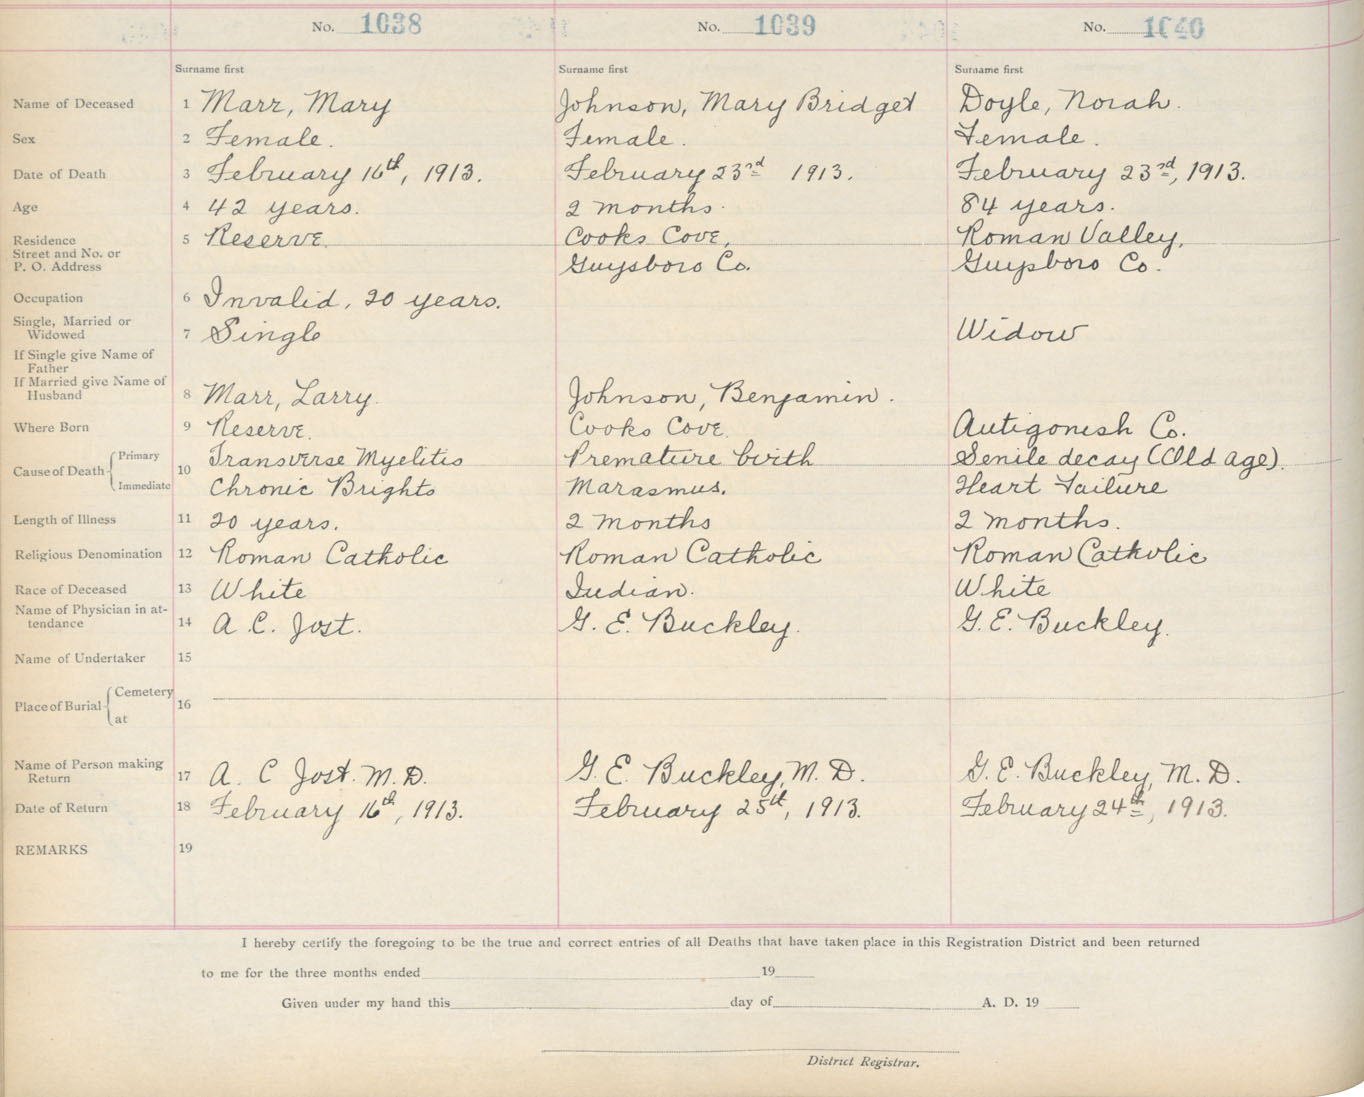 No. 1038 No. 1039 No. 1040
Surname first Surname first Surname first
Name of Deceased 1 Marr, Mary Johnson, Mary Bridget Doyle, Norah.
Sex 2 Female. Female. Female.
Date of Death 3 February 16th, 1913. February 23rd 1913. February 23rd, 1913.
Age 4 42 years. 2 months. 84 years.
Residence 5 Reserve. Cooks Cove, Roman Valley,
Street and No. or
P. O. Address Guysboro Co. Guysboro Co.
Occupation 6 Invalid, 20 years.
Single, Married or
Widowed 7 Single Widow
If Single give Name of
Father
If Married give Name of
Husband 8 Marr, Larry. Johnson, Benjamin.
Where Born 9 Reserve. Cooks Cove. Antigonish Co.
Cause of Death Primary 10 Transverse Myelitis Premature birth Senile decay (Old age).
Immediate Chronic Brights Marasmus. Heart Failure
Length of Illness 11 20 years. 2 months 2 months.
Religious Denomination 12 Roman Catholic Roman Catholic Roman Catholic
Race of Deceased 13 White Indian. White
Name of Physician in at-
tendance 14 A. C. Jost. G. E. Buckley. G. E. Buckley.
Name of Undertaker 15
Place of Burial Cemetery 16
at
Name of Person making
Return 17 A. C Jost. M. D. G. E. Buckley, M. D. G. E. Buckley, M. D.
Date of Return 18 February 16th, 1913. February 25th, 1913. February 24th, 1913.
REMARKS 19
I hereby certify the foregoing to be the true and correct entries of all Deaths that have taken place in this Registration District and been returned
to me for the three months ended 19
Given under my hand this day of A. D. 19
District Registrar.